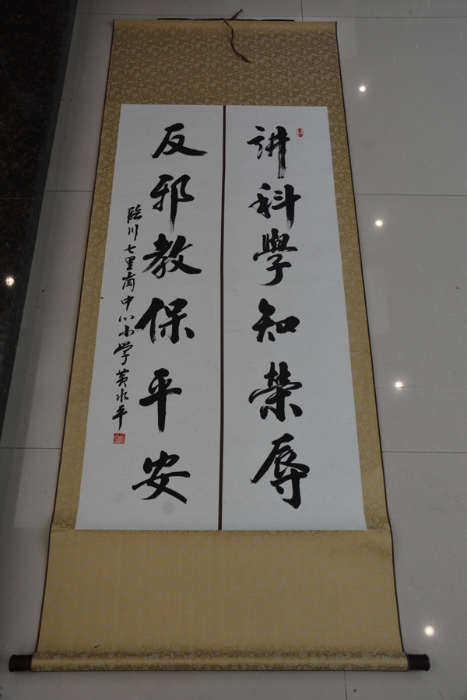 讲科學知榮辱
反邪教保平安
臨川七里崗中心小学黄水平